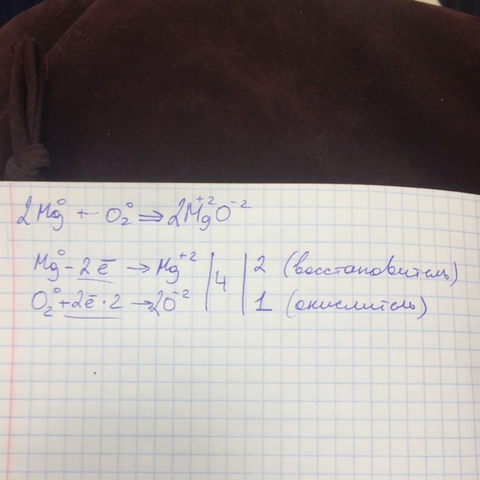 2Mg⁰ + O₂⁰ ⇒ 2Mg⁺²O⁻²
Mg⁰ - 2ē → Mg⁺² | 4 | 2 (восстановитель)
O₂⁰ + 2ē · 2 → 2O⁻² | | 1 (окислитель)